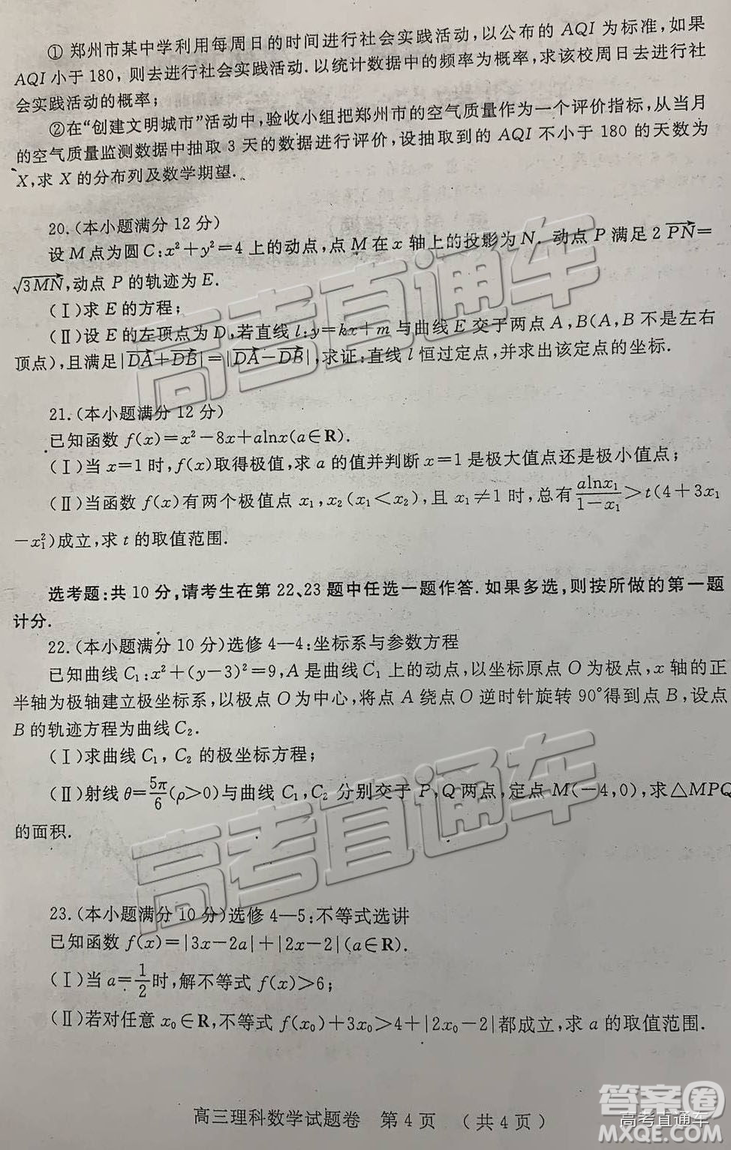 ① 郑州市某中学利用每周日的时间进行社会实践活动,以公布的 AQI 为标准,如果
AQI 小于 180, 则去进行社会实践活动.以统计数据中的频率为概率,求该校周日去进行社
会实践活动的概率;
②在“创建文明城市”活动中,验收小组把郑州市的空气质量作为一个评价指标,从当月
的空气质量监测数据中抽取 3 天的数据进行评价,设抽取到的 AQI 不小于 180 的天数为
X,求 X 的分布列及数学期望.
20.(本小题满分 12 分)
设 M 点为圆 C:x²+y²=4 上的动点,点 M 在 x 轴上的投影为 N. 动点 P 满足 2 PN=
√3MN,动点 P 的轨迹为 E.
(Ⅰ)求 E 的方程;
(Ⅱ)设 E 的左顶点为 D,若直线 l:y=kx+m 与曲线 E 交于两点 A,B(A,B 不是左右
顶点),且满足|DA+DB|=|DA-DB|,求证:直线 l 恒过定点,并求出该定点的坐标.
21.(本小题满分 12 分)
已知函数 f(x)=x²-8x+alnx(a∈R).
(Ⅰ)当 x=1 时,f(x)取得极值,求 a 的值并判断 x=1 是极大值点还是极小值点;
(Ⅱ)当函数 f(x)有两个极值点 x₁,x₂(x₁<x₂),且 x₁≠1 时,总有alnx₁/1-x₁>t(4+3x₁
-x₁²)成立,求 t 的取值范围.
选考题:共 10 分,请考生在第 22、23 题中任选一题作答.如果多选,则按所做的第一题
计分.
22.(本小题满分 10 分)选修 4—4:坐标系与参数方程
已知曲线 C₁:x²+(y-3)²=9,A 是曲线 C₁ 上的动点,以坐标原点 O 为极点,x 轴的正
半轴为极轴建立极坐标系,以极点 O 为中心,将点 A 绕点 O 逆时针旋转 90°得到点 B,设点
B 的轨迹方程为曲线 C₂.
(Ⅰ)求曲线 C₁, C₂ 的极坐标方程;
(Ⅱ)射线 θ=5π/6(ρ>0)与曲线 C₁,C₂ 分别交于 P,Q 两点,定点 M(-4,0),求△MPQ
的面积.
23.(本小题满分 10 分)选修 4—5:不等式选讲
已知函数 f(x)=|3x-2a|+|2x-2|(a∈R).
(Ⅰ)当 a=1/2时,解不等式 f(x)>6;
(Ⅱ)若对任意 x₀∈R,不等式 f(x₀)+3x₀>4+|2x₀-2|都成立,求 a 的取值范围.
高三理科数学试题卷 第 4 页 (共 4 页)
高考直通车
高考直通车
高考直通车
答案圈
MXQE.COM